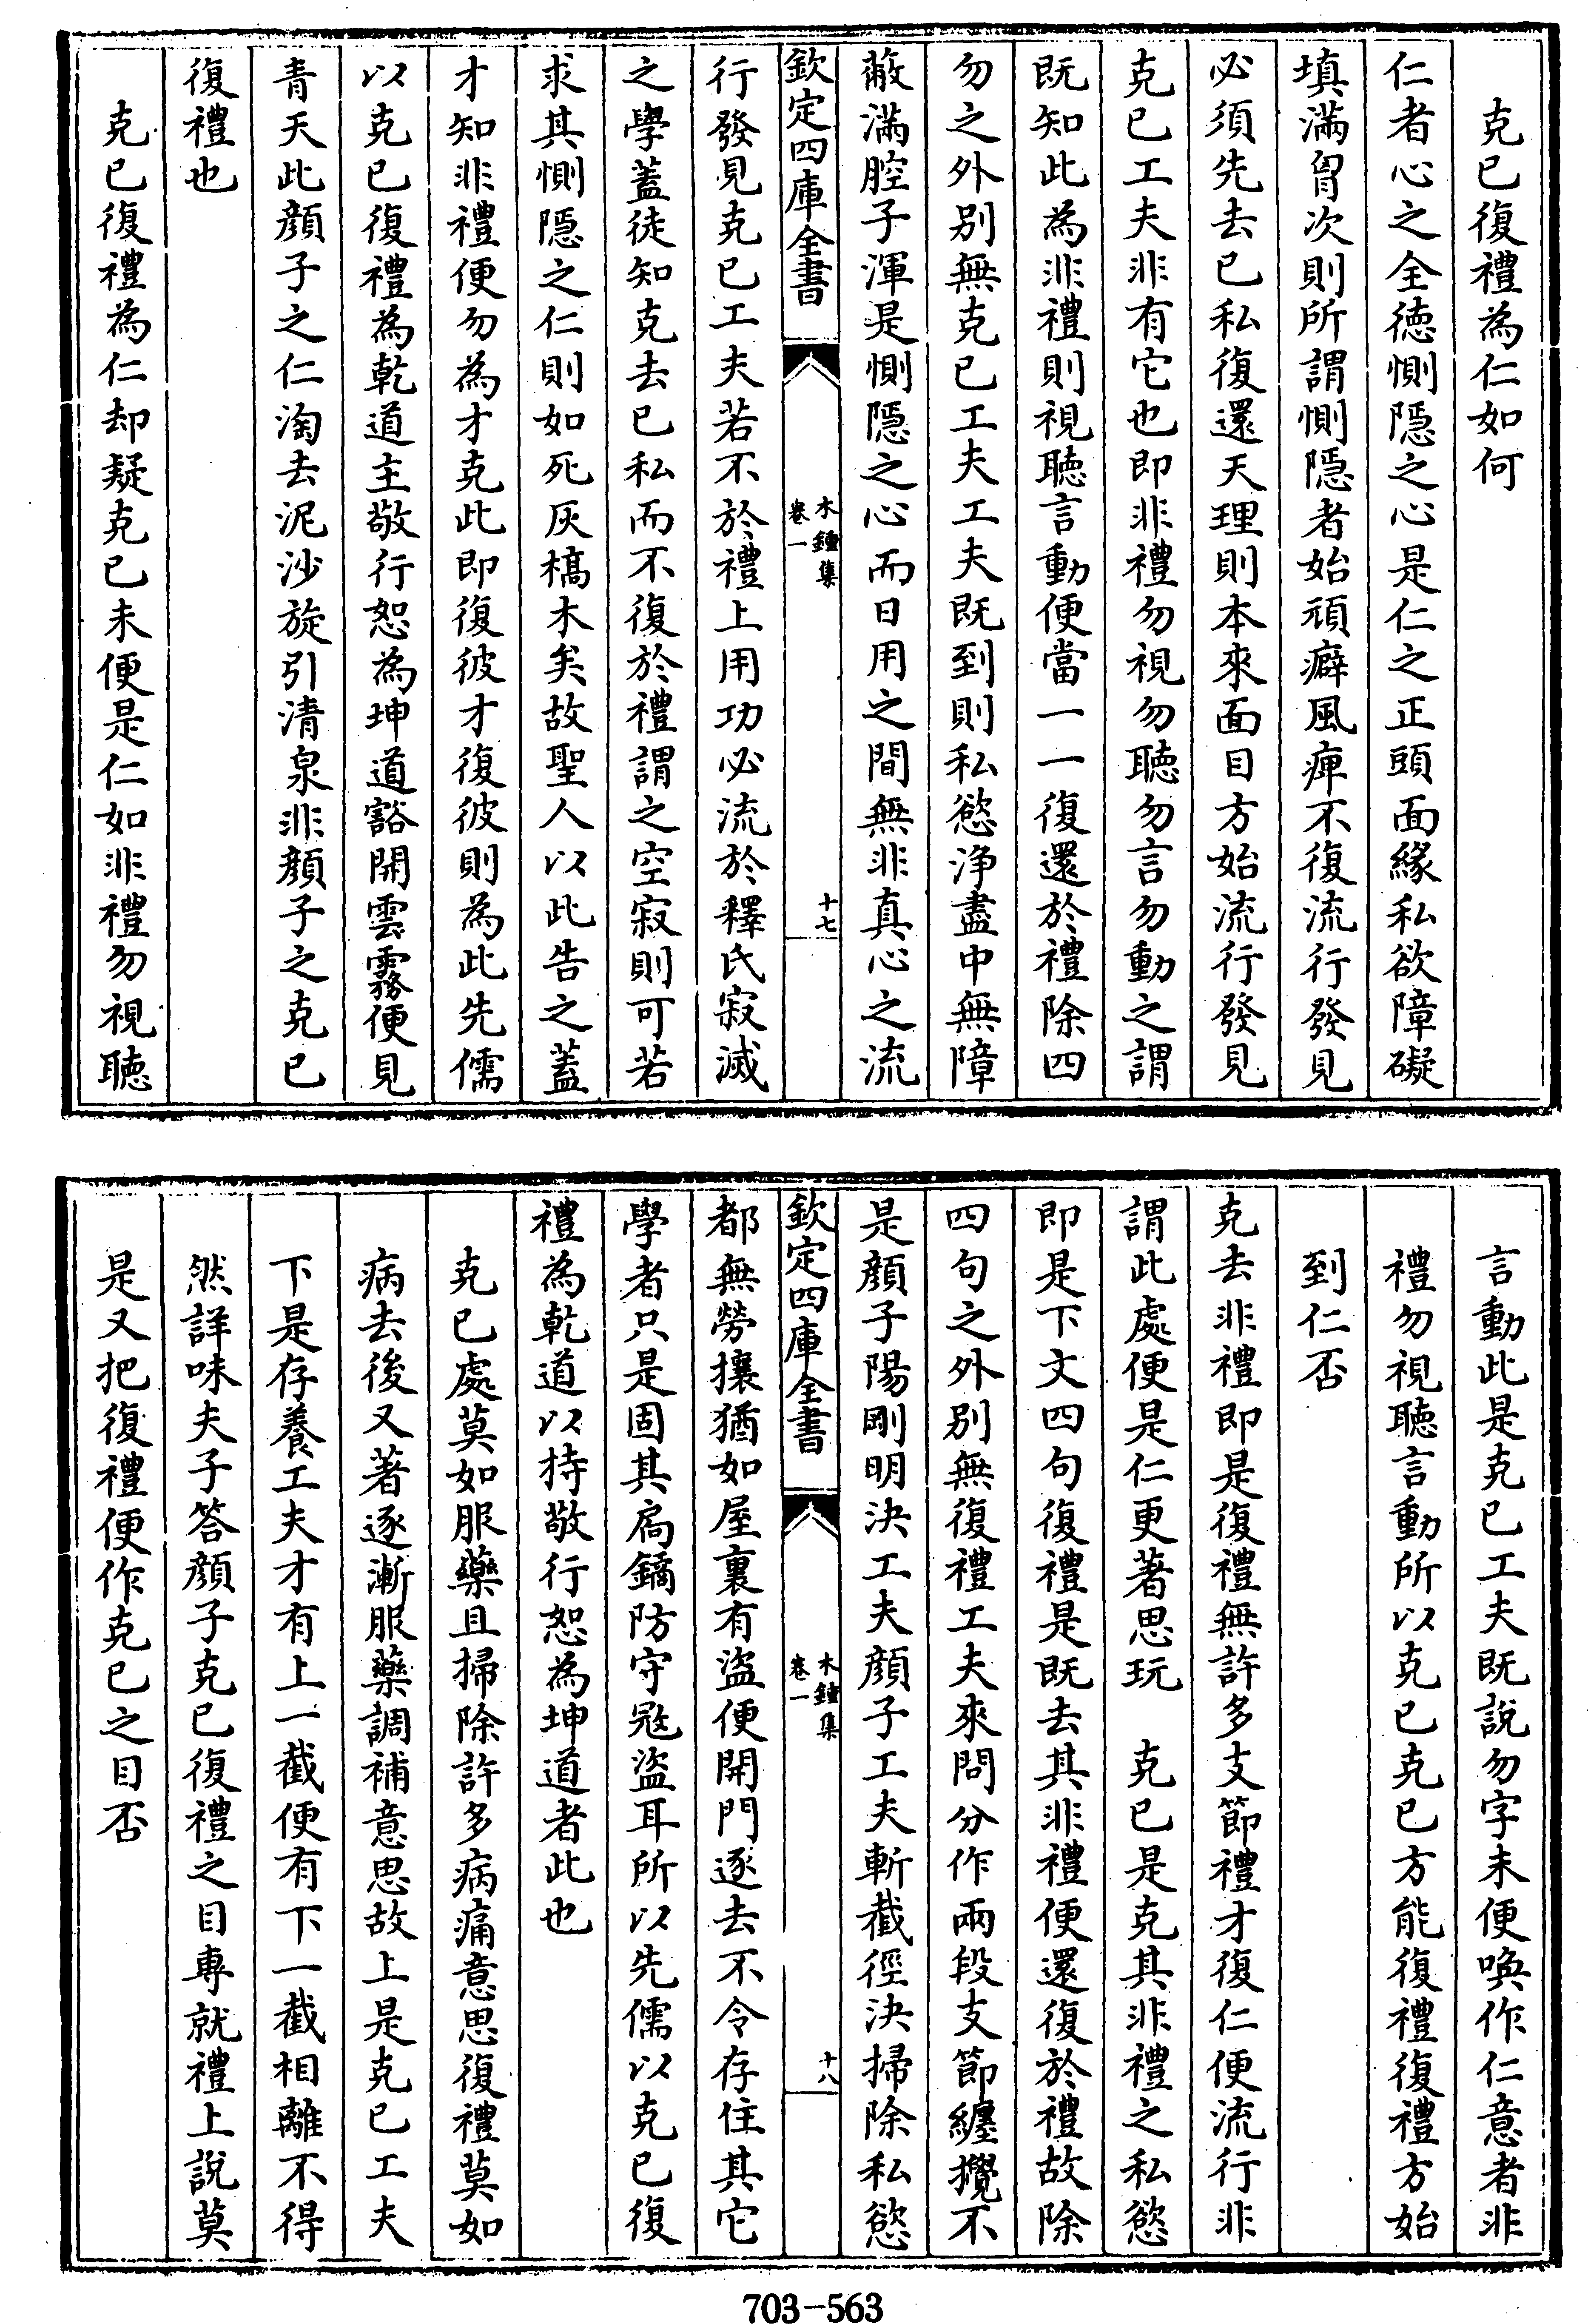 克已復禮為仁如何
仁者心之全徳惻隠之心是仁之正頭面縁私欲障礙
填滿胷次則所謂惻隠者始頑癖風痺不復流行發見
必須先去已私復還天理則本來面目方始流行發見
克已工夫非有它也即非禮勿視勿聽勿言勿動之謂
既知此為非禮則視聽言動便當一一復還於禮除四
勿之外别無克已工夫工夫既到則私慾浄盡中無障
蔽滿腔子渾是惻隠之心而日用之間無非真心之流
欽定四庫全書
木鐘集
卷一
十七
行發見克已工夫若不於禮上用功必流於釋氏寂滅
之學蓋徒知克去已私而不復於禮謂之空寂則可若
求其惻隠之仁則如死灰槁木矣故聖人以此告之蓋
才知非禮便勿為才克此即復彼才復彼則為此先儒
以克已復禮為乾道主敬行恕為坤道豁開雲霧便見
青天此顔子之仁淘去泥沙旋引清泉非顔子之克已
復禮也
克已復禮為仁却疑克已未便是仁如非禮勿視聽
言動此是克已工夫既説勿字未便喚作仁意者非
禮勿視聽言動所以克已克已方能復禮復禮方始
到仁否
克去非禮即是復禮無許多支節禮才復仁便流行非
謂此處便是仁更著思玩　克已是克其非禮之私慾
即是下文四句復禮是既去其非禮便還復於禮故除
四句之外别無復禮工夫來問分作兩段支節纏攪不
是顔子陽剛明決工夫顔子工夫斬截徑決掃除私慾
欽定四庫全書
木鐘集
卷一
十八
都無勞攘猶如屋裏有盜便開門逐去不令存住其它
學者只是固其扃鐍防守冦盜耳所以先儒以克已復
禮為乾道以持敬行恕為坤道者此也
克已處莫如服藥且掃除許多病痛意思復禮莫如
病去後又著逐漸服藥調補意思故上是克已工夫
下是存養工夫才有上一截便有下一截相離不得
然詳味夫子答顔子克已復禮之目專就禮上説莫
是又把復禮便作克已之目否
703-563